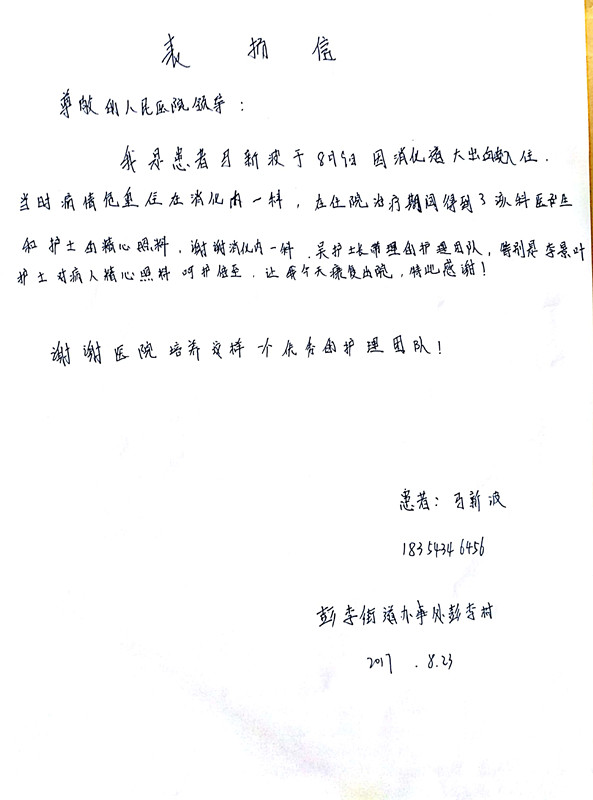 表扬信
尊敬的人民医院领导：
我是患者马新波于8月9日因消化道大出血入住.
当时病情危重住在消化内一科，在住院治疗期间得到了该科医生
和护士的精心照料，谢谢消化内一科.吴护士长带理的护理团队，特别是李景叶
护士对病人精心照料呵护倍至.让我今天康复出院，特此感谢！
谢谢医院培养这样一个优秀的护理团队！
患者：马新波
18354346456
彭李街道办事处彭李村
2017.8.23